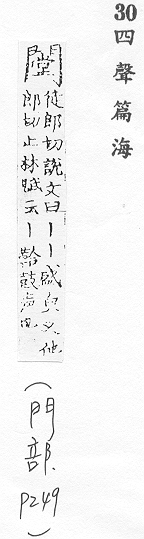 30 四聲篇海
闛 徒郎切說文曰丨丨盛皃又他
郎切上林賦云丨鞈鼓声也
(門部 P249)